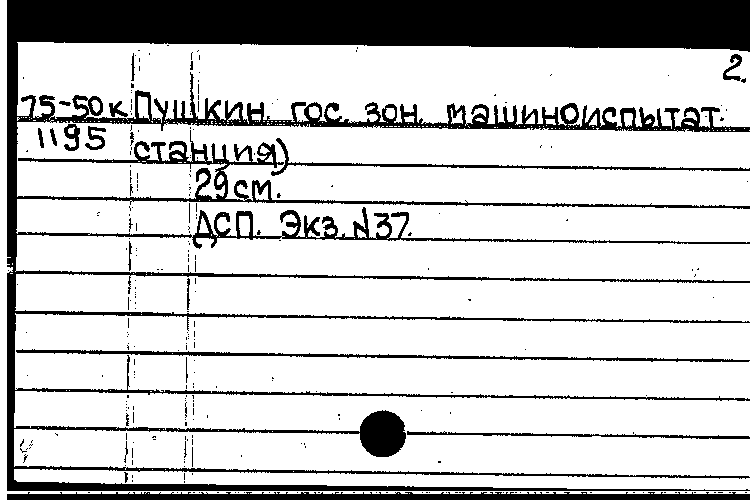 2.
75-50к Пушкин. гос. зон. машиноиспытат.
1195 станция)
29 см.
ДСП. Экз. №37.